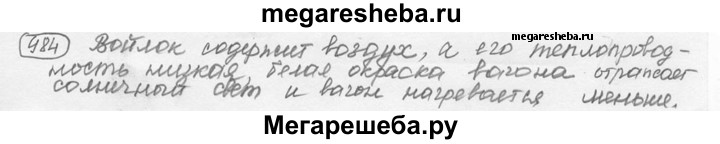 megaresheba.ru
megaresheba.ru
984 Войлок содержит воздух, а его теплопровод-
ность низкая, белая окраска вагона отражает
солнечный свет и вагон нагревается меньше.
Мегарешеба.ру